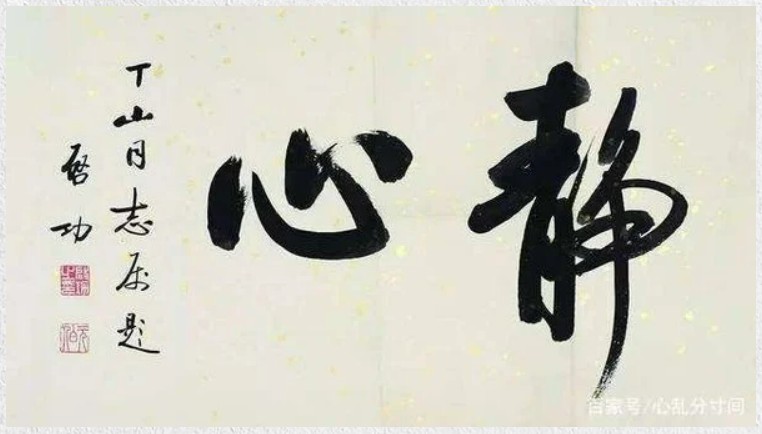 静心
丁山同志属题
启功
百家号/心乱分寸间